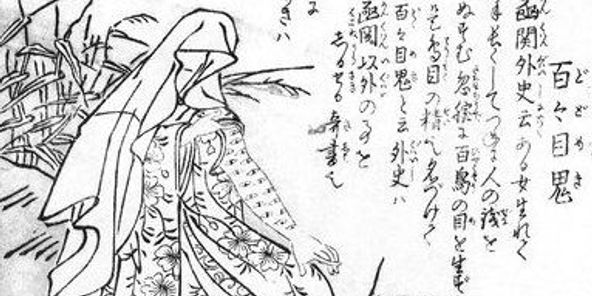 百々目鬼
函関外史云ある女生れて
手長くしてつねに人の銭を
ぬすむ忽腕に百鳥の目を生ず
是鳥目の精也名づけて
百々目鬼と云外史ハ
函関以外の事を
しるせる奇書也
きハ